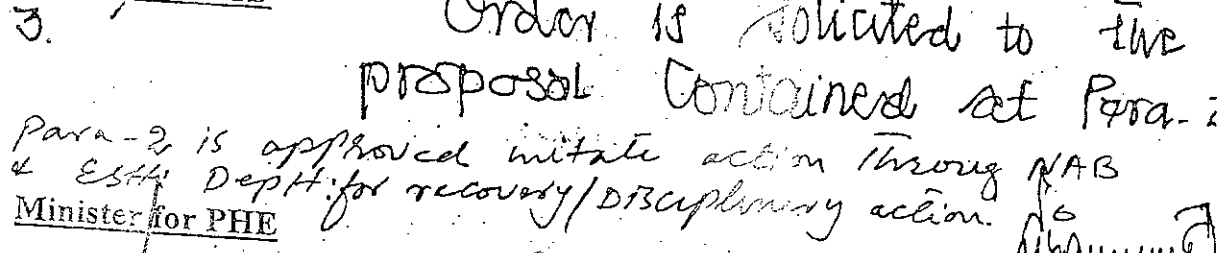 3. Order is solicited to the
proposal Contained at Para-2
Para-2 is approved initate action Throug NAB
& Estt: Deptt: for recovery/Disciplinery action.
Minister for PHE